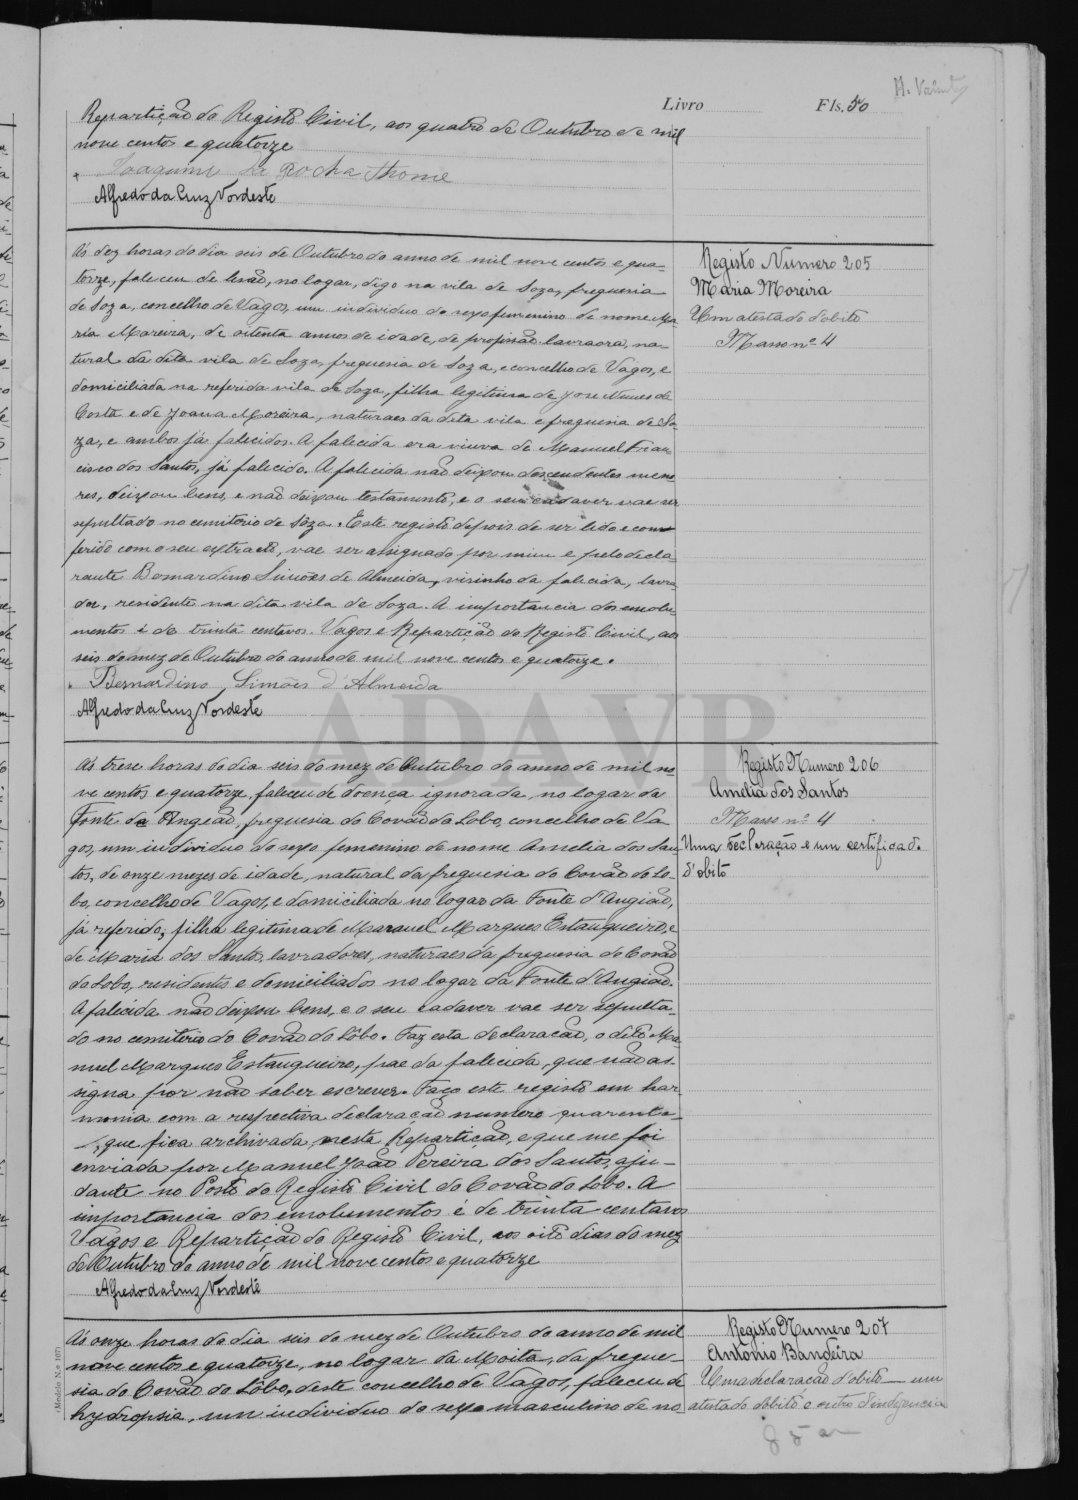 Livro Fls. 50
Repartição do Registo Civil, aos quatro de Outubro de mil
nove centos e quatorze
Joaquim da Rocha Thomé
Alfredo da Cruz Nordeste
Registo Numero 205
Maria Moreira
Um atestado d'obito
Masso nº 4
Ás dez horas do dia seis de Outubro do anno de mil nove centos e qua-
torze, faleceu de lesão, no logar, digo na vila de Soza, freguesia
de Soza, concelho de Vagos, um individuo do sexo femenino de nome Ma-
ria Moreira, de oitenta annos de idade, de profissão lavraora, na-
tural da dita vila de Soza, freguesia de Soza, e concelho de Vagos, e
domiciliada na referida vila de Soza, filha legitima de José Nunes da
Costa e de Joana Moreira, naturaes da dita vila e freguesia de So-
za, e ambos já falecidos. A falecida era viuva de Manuel Fran-
cisco dos Santos, já falecido. A falecida não deixou descendentes meno-
res, deixou bens, e não deixou testamento, e o seu cadaver vae ser
sepultado no cemiterio de Sôza. Este registo depois de ser lido e con-
ferido com o seu extracto, vae ser assignado por mim e pelo decla-
rante Bernardino Simões de Almeida, visinho da falecida, lavra-
dor, residente na dita vila de Soza. A importancia dos emolu-
mentos é de trinta centavos. Vagos e Repartição do Registo Civil, aos
seis do mez de Outubro do anno de mil nove centos e quatorze.
Bernardino Simões d'Almeida
Alfredo da Cruz Nordeste
ADAVR
Registo Numero 206
Amelia dos Santos
Masso nº 4
Uma declaração e um certificado
d'obito
Ás treze horas do dia seis do mez de Outubro do anno de mil no-
ve centos e quatorze, faleceu de doença ignorada, no logar da
Fonte de Angeão, freguesia do Covão do Lobo, concelho de Va-
gos, um individuo do sexo femenino de nome Amelia dos San-
tos, de onze mezes de idade, natural da freguesia do Covão do Lo-
bo, concelho de Vagos, e domiciliada no logar da Fonte d'Angião,
já referido, filha legitima de Manuel Marques Estanqueiro, e
de Maria dos Santos, lavradores, naturaes da freguesia do Covão
do Lobo, residentes e domiciliados no logar da Fonte d'Angião.
A falecida não deixou bens, e o seu cadaver vae ser sepulta-
do no cemiterio do Covão do Lôbo. Faz esta declaração, o dito Ma-
nuel Marques Estanqueiro, pae da falecida, que não as-
signa por não saber escrever. Faço este registo em har-
monia com a respectiva declaração numero quarenta
, que fica archivada, nesta Repartição, e que me foi
enviada por Manuel João Pereira dos Santos, aju-
dante no Posto do Registo Civil do Covão do Lobo. A
importancia dos emolumentos é de trinta centavos
Vagos e Repartição do Registo Civil, aos oito dias do mez
de Outubro do anno de mil nove centos e quatorze
Alfredo da Cruz Nordeste
Registo Numero 207
Antonio Bandeira
Uma declaração d'obito um
atestado d'obito e outro d'indigencia
Ás onze horas do dia seis do mez de Outubro do anno de mil
nove centos e quatorze, no logar da Moita, da fregue-
sia do Covão do Lôbo, deste concelho de Vagos, faleceu de
hydropsia, um individuo do sexo masculino de no-
(Modelo N.º 107)